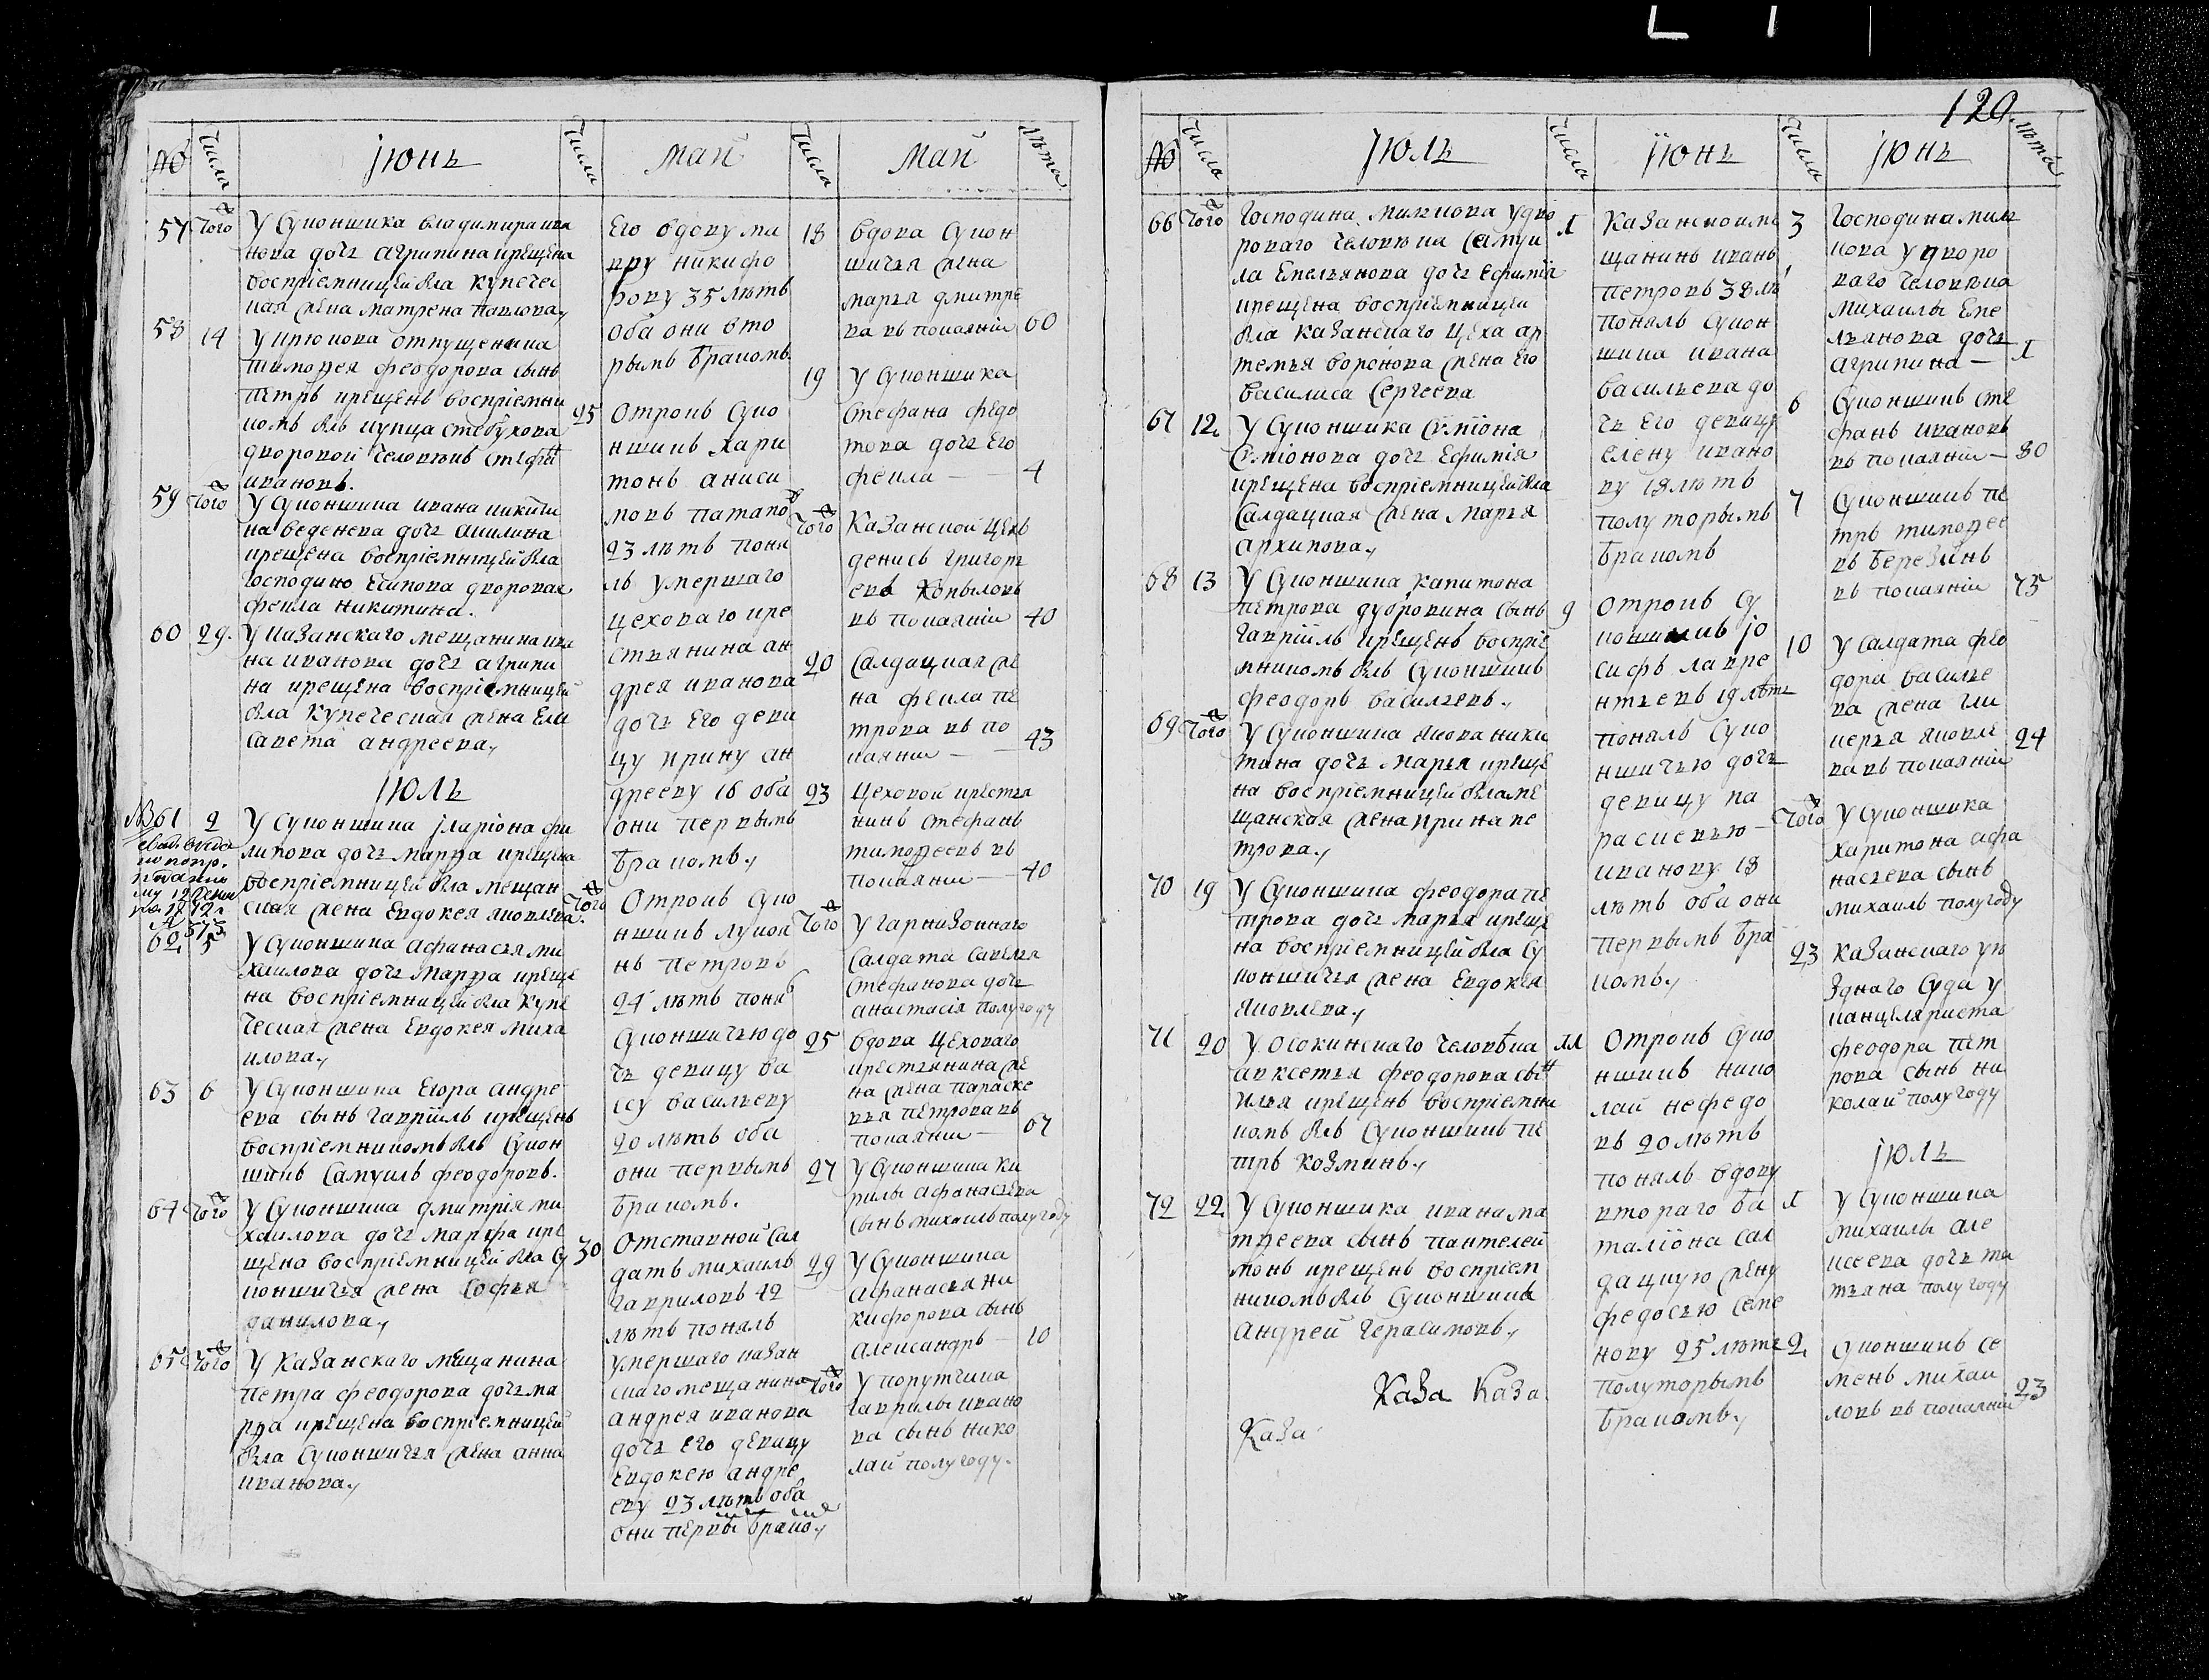 120.
№
Числа
Іюнь
Числа
май
Числа
май
лѣта
57 Того У Суконщика владимира ива
нова дочь агрипина крещена
восприемницей была купечес
кая жена матрена павлова,
58 14 У
тимофея феодорова сынъ
петръ крещенъ восприемни
комъ былъ купца
дворовой человѣкъ стефанъ
ивановъ.
59 Того У Суконщика ивана никити
на веденева дочь акилина
крещена восприемницей была
господина есипова дворовая
фекла никитина.
60 29. У казанскаго мещанина ива
на иванова дочь агрипи
на крещена восприемницей
была купеческая жена Ели
савета андреева,
Іюль
№ 61 2 У Суконщика Іларіона фи
липова дочь марфа крещена
восприемницей была мещан
ская жена Евдокея яковлева.
62 5 У Суконщика афанасья ми
хаилова дочь марфа креще
на восприемницей была купе
ческая жена Евдокея миха
илова,
63 6 У Суконщика Егора андре
ева сынъ гавріилъ крещенъ
восприемникомъ былъ Сукон
щикъ Самуилъ феодоровъ.
64 Того У Суконщика дмитрія ми
хаилова дочь марфа кре
щена восприемницей была Су
конщичья жена Софья
данилова,
65 Того У казанскаго мещанина
петра феодорова дочь ма
рфа крещена восприемницей
была Суконщичья жена анна
иванова,
Его вдову ма
вру никифо
рову 35 лѣтъ
оба они вто
рымъ бракомъ
25 Отрокъ Суко
нщикъ хари
тонъ аниси
мовъ
23 лѣтъ поня
лъ умершаго
цеховаго кре
стьянина ан
дрея иванова
дочь его деви
цу ирину ан
дрееву 16 оба
они первымъ
бракомъ,
Того Отрокъ Суко
нщикъ лукоя
нъ петровъ
24 лѣтъ поня
Суконщичью до
чь девицу ва
ссу васильеву
20 лѣтъ оба
они первымъ
бракомъ.
30 Отставной сал
датъ михаилъ
гавриловъ 42
лѣтъ понялъ
умершаго казан
скаго мещанина
андрея иванова
дочь его девицу
Евдокею андре
еву 23 лѣтъ оба
они первы брако,
18 вдова Сукон
щичья жена
марья дмитре
ва въ покаяніи 60
19 У Суконщика
стефана федо
това дочь его
фекла — 4
Того Казанской цехъ
денисъ григорь
евъ копыловъ
въ покаяніи 40
20 Салдацкая же
на фекла пе
трова въ по
каяніи — 43
23 цеховой крестья
нинъ стефанъ
тимофеевъ въ
покаяніи — 40
Того У гарнизоннаго
салдата савелья
стефанова дочь
анастасія полугоду
25 вдова цеховаго
крестьянина же
на жена параске
вья петрова въ
покаяніи — 67
27 У Суконщика ки
рилы афанасьева
сынъ михаилъ полугоду
29 У Суконщика
афанасья ни
кифорова сынъ
александръ — 10
Того У порутчика
гаврилы ивано
ва сынъ нико
лай полугоду.
№
Числа
Іюль
Числа
Іюнь
Числа
Іюнь
лѣта
66 Того Господина милкова у дво
роваго человѣка самуи
ла Емельянова дочь Ефимія
крещена восприемницей
была казанскаго цеха ар
темья воронова жена его
василиса сергеева
67 12. У Суконщика сѵмпіона
дочь Ефимія
крещена восприемницей была
салдацкая жена марья
архипова,
68 13 У Суконщика капитона
петрова дубровина сынъ
гавріилъ крещенъ восприе
мникомъ былъ Суконщикъ
феодоръ васильевъ,
69 Того У Суконщика якова ники
тина дочь марья креще
на восприемницей была ме
щанская жена ирина пе
трова,
70 19 У Суконщика феодора пе
трова дочь марья креще
на восприемницей была Су
конщичья жена Евдокея
яковлева,
71 20 У осокинскаго человѣка
авксетья феодорова сынъ
илья крещенъ восприемни
комъ былъ Суконщикъ пе
тръ козминъ,
72 22. У Суконщика ивана ма
твеева сынъ пантелей
монъ крещенъ восприем
никомъ былъ Суконщикъ
андрей герасимовъ,
Каза Каза
Каза
1 Казанской ме
щанинъ иванъ
петровъ 38 лѣ
понялъ сукон
щика ивана
васильева до
чь его девицу
елену ивано
ву 18 лѣтъ
полуторымъ
бракомъ
9 Отрокъ су
конщикъ іо
сифъ лавре
нтьевъ 19 лѣтъ
понялъ суко
нщичью дочь
девицу па
раскевью
иванову 18
лѣтъ оба они
первымъ бра
комъ,
11 Отрокъ суко
нщикъ нико
лай нефедо
въ 20 лѣтъ
понялъ вдову
втораго ба
таліона сал
дацкую жену
федосью семе
нову 25 лѣтъ
полуторымъ
бракомъ,
3 Господина мил
кова у дворо
ваго человѣка
михаилы Еме
льянова дочь
агрипина — 1
6 Суконщикъ сте
фанъ ивановъ
въ покаяніи — 80
7 Суконщикъ пе
тръ тимофее
въ березинъ
въ покаяніи 75
10 У салдата фео
дора василье
ва жена гли
керья яковле
ва въ покаяніи 24
Того У Суконщика
харитона афа
насьева сынъ
михаилъ полугоду
23 Казанскаго уѣ
зднаго суда у
канцеляриста
феодора пет
рова сынъ ни
колай полугоду
Іюль
1 У Суконщика
михаилы але
ксеева дочь та
тьяна полугоду
2. Суконщикъ се
менъ михаи
ловъ въ покаяніи 23